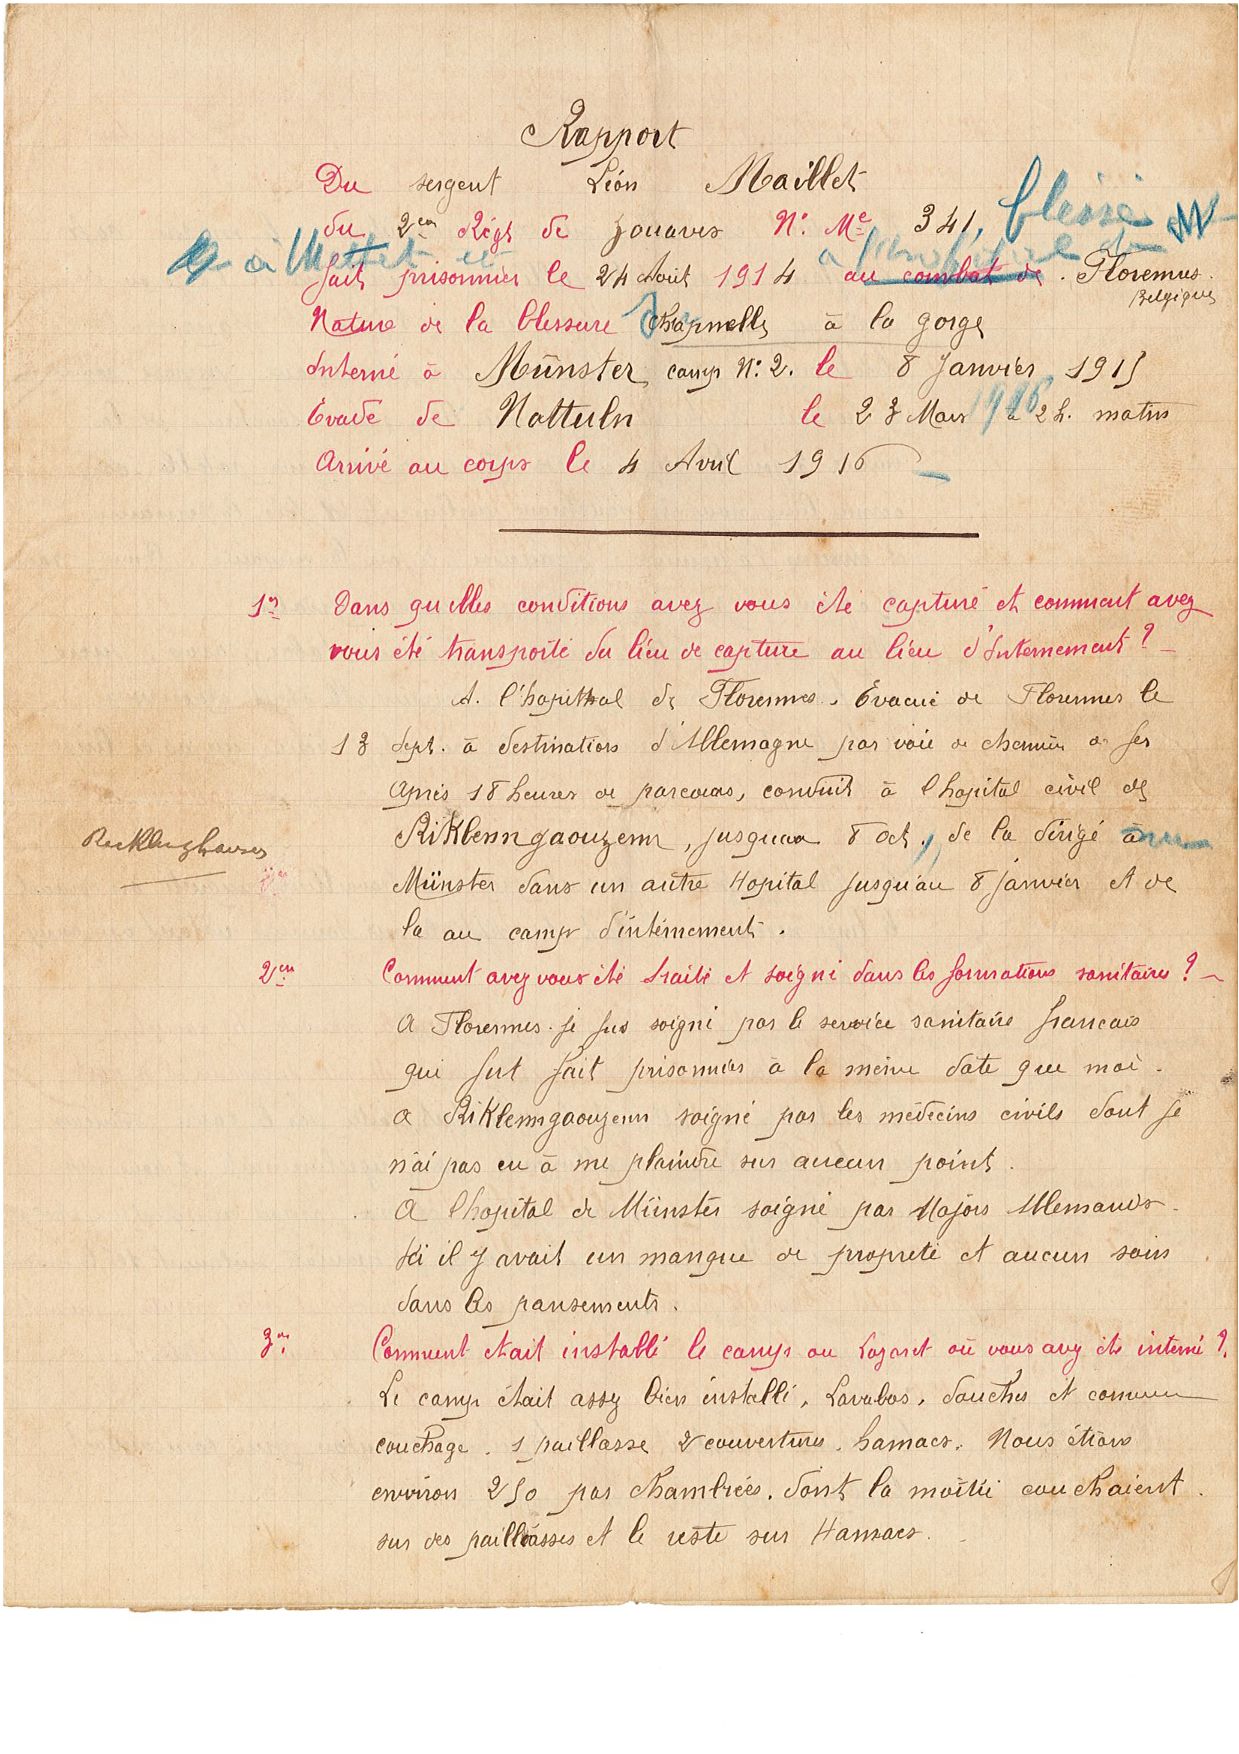 Rapport
Du sergent Léon Maillet
du 2em Régt de zouaves N° Mle 341, blessé
à Mettet et à l'hopital de
fait prisonnier le 24 Aout 1914 au combat de Florennes.
Belgique
Nature de la blessure chapnells à la gorge
Interné à Münster camp N° 2. le 8 Janvier 1915
Évadé de Nottuln le 23 Mars 1916 à 2 h. matin
Arrivé au corps le 4 Avril 1916
1er Dans quelles conditions avez vous été capturé et comment avez
vous été transporté du lieu de capture au lieu d'Internement ?
A. l'hopithal de Florennes. Évacué de Florennes le
13 Sept. à destination d'Allemagne par voie de chemin de fer
Après 18 heures de parcours, conduit à l'hopital civil de
Riklenngaouzenn, jusquau 8 oct, de la dirigé à
Recklinghausen
Münster dans un autre Hopital jusqu'au 8 janvier et de
la au camp d'internement.
2em Comment avez vous été traité et soigné dans les formations sanitaires ?
A Florennes. je fus soigné par le service sanitaire francais
qui fut fait prisonnier à la même date que moi.
a Riklenngaouzenn soigné par les médecins civils dont je
n'ai pas eu à me plaindre sur aucun point.
A l'hopital de Münster soigné par Majors Allemands.
ki il y avait un manque de propreté et aucun soin
dans les pansements.
3em Comment était installé le camp ou Lazaret où vous avez été interné ?
Le camp était assez bien installé, Lavabos, douches et comme
couchage. 1 paillasse 2 couvertures. hamacs. Nous étions
environ 250 par chambrées. dont la moitié couchaient
sur des paillasses et le reste sur Hamacs.